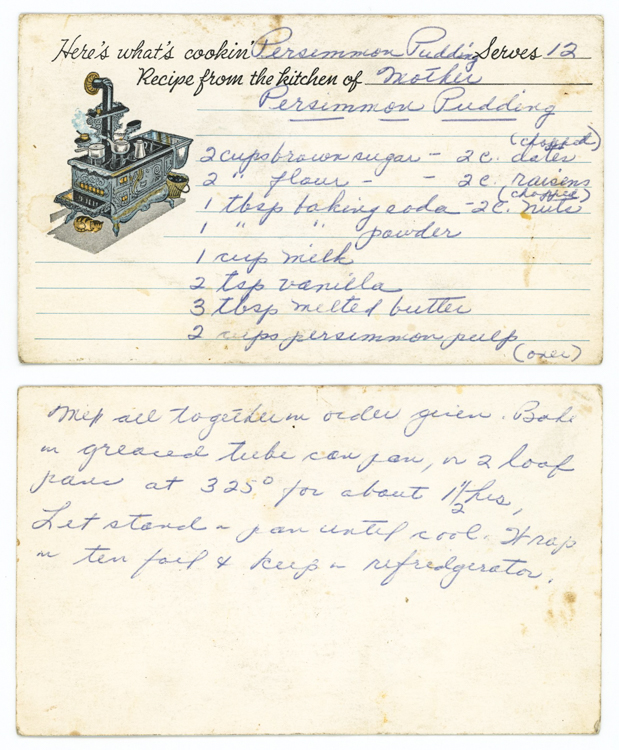 Here's what's cookin' Persemmon Pudding Serves 12
Recipe from the kitchen of Mother
Persimmon Pudding
(chopped)
2 cups brown sugar - 2 c. dates
2 " flour - - 2 c. raisens
(chopped)
1 tbsp baking soda - 2 c. nuts
1 " " powder
1 cup milk
2 tsp vanilla
3 tbsp melted butter
2 cups persimmon pulp
(over)
Mix all together in order given. Bake
in greased tube can pan, or 2 loaf
pans at 325° for about 1 1/2 hrs,
Let stand in pan until cool. Wrap
in ten foil & keep in refredgerator.